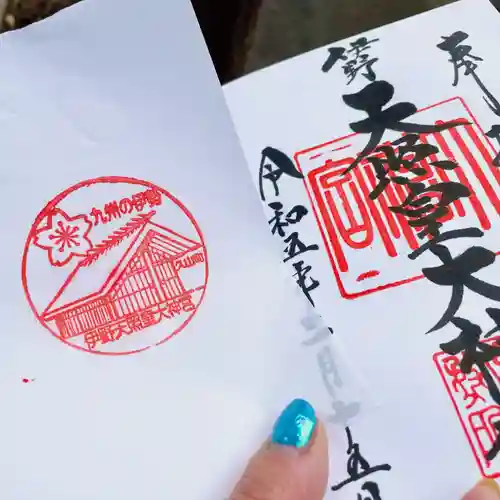 九州の伊勢
伊野天照皇大神宮
奉
伊野
天照皇大神
令和五年二月十五日